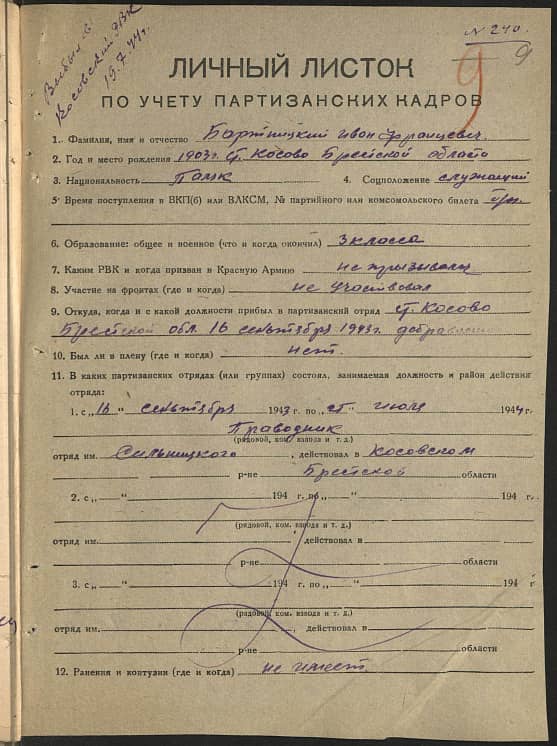 № 240.
9
9
Выбыл в
Косовский РВК
19.7.44 г.
ЛИЧНЫЙ ЛИСТОК
ПО УЧЕТУ ПАРТИЗАНСКИХ КАДРОВ
1. Фамилия, имя и отчество Бартницкий Иван Францевич.
2. Год и место рождения 1903 г. Косово Брестской области
3. Национальность Поляк 4. Соцположение служащий
5. Время поступления в ВКП(б) или ВЛКСМ, № партийного или комсомольского билета
6. Образование: общее и военное (что и когда окончил) 3 класса
7. Каким РВК и когда призван в Красную Армию не призывался
8. Участие на фронтах (где и когда) не участвовал
9. Откуда, когда и с какой должности прибыл в партизанский отряд Косово
Брестской обл. 16 сентября 1943 г. добровольно
10. Был ли в плену (где и когда) нет.
11. В каких партизанских отрядах (или группах) состоял, занимаемая должность и район действия
отряда:
1. с „16" сентября 1943 г. по „ " июля 1944 г.
Праводник
(рядовой, ком. взвода и т. д.)
отряд им. Сильницкого, действовал в Косовском
р-не Брестской области
2. с „ " 194 г. по „ " 194 г.
(рядовой, ком. взвода и т. д.)
отряд им. , действовал в
р-не области
3. с „ " 194 г. по „ " 194 г
(рядовой, ком. взвода и т. д.)
отряд им. , действовал в
р-не области
12. Ранения и контузии (где и когда) не имеет.